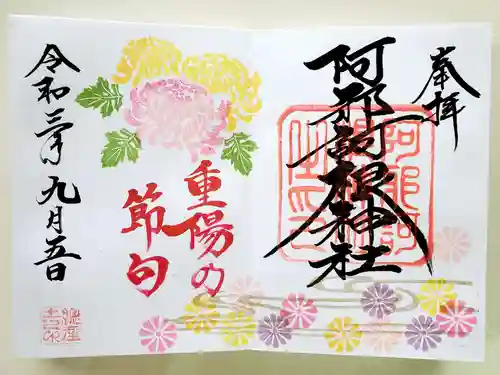 奉拝
阿邪訶根神社
重陽の
節句
令和三年九月五日